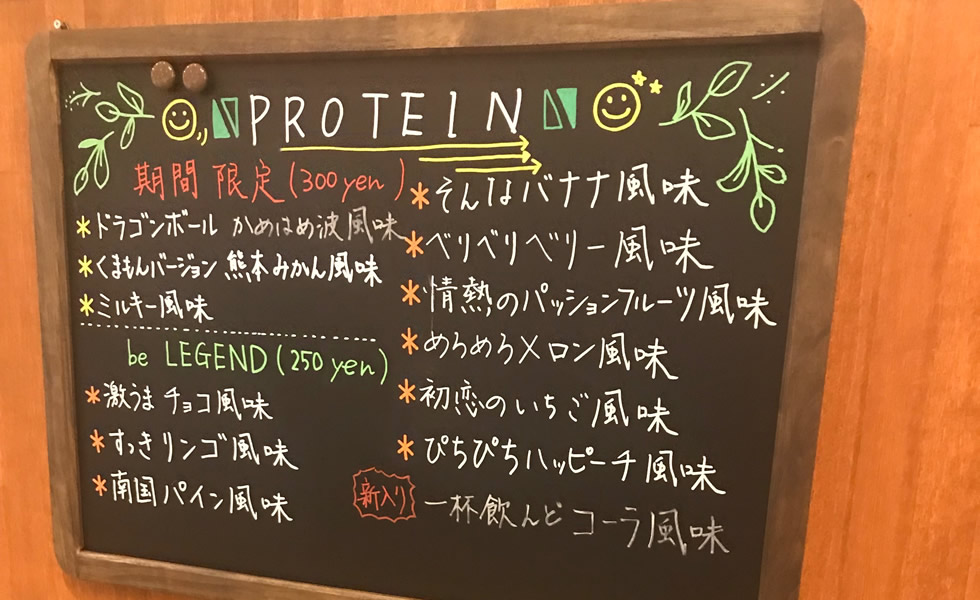 PROTEIN
期間限定(300yen)
*ドラゴンボール かめはめ波風味
*くまもんバージョン 熊本みかん風味
*ミルキー風味
be LEGEND(250yen)
*激うまチョコ風味
*すっきリンゴ風味
*南国パイン風味
*そんなバナナ風味
*ベリベリベリー風味
*情熱のパッションフルーツ風味
*めろめろメロン風味
*初恋のいちご風味
*ぴちぴちハッピーチ風味
新入り 一杯飲んどコーラ風味